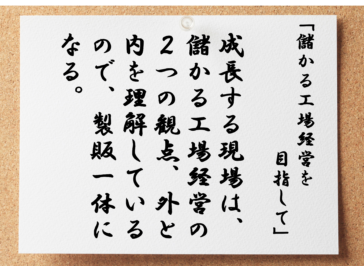 「儲かる工場経営を
目指して」
成長する現場は、
儲かる工場経営の
2つの観点、外と
内を理解している
ので、製販一体に
なる。